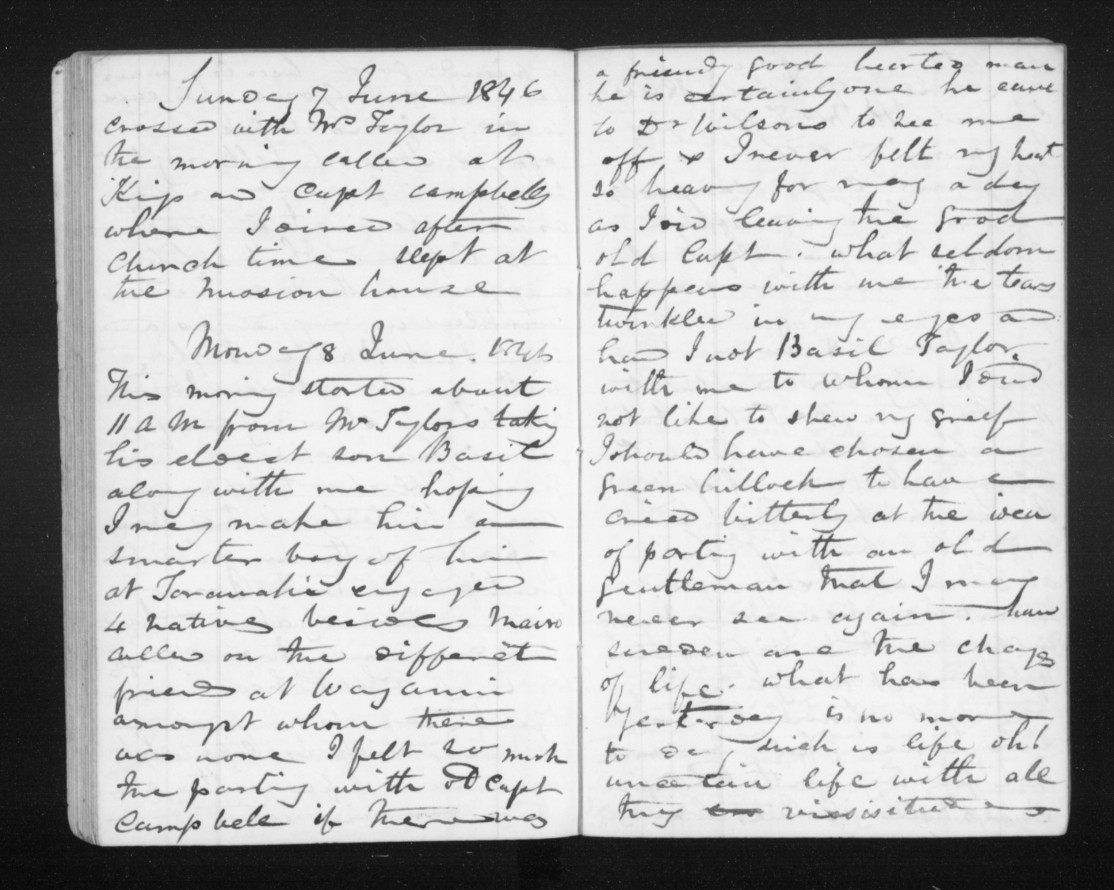 Sunday 7 June 1846
crossed with Mr Taylor in
the morning called at
Kips and Capt campbells
where I dined after
church time slept at
the Mission house
Monday 8 June. 1846
This morning started about
11 A M from Mr Taylors taking
his eldest son Basil
along with me hoping
I may make him a
smarter boy of him
at Taranaki engaged
4 natives besides Mairo
called on the different
friends at Wanganui
amongst whom there
was none I felt so much
the parting with old Capt
Campbell if there was
a friendly good hearted man
he is certainly one he came
to Dr Wilsons to see me
off & I never felt my heart
so heavy for many a day
as I did leaving the good
old Capt. what seldom
happens with me the tears
twinkled in my eyes and
had I not Basil Taylor
with me to whom I did
not like to shew my grief
I should have chosen a
green hillock to have
cried bitterly at the idea
of parting with an old
gentleman that I may
never see again. how
sudden are the changes
of life. what has been
yesterday is no more
to day such is life oh!
uncertain life with all
thy vissisitudes